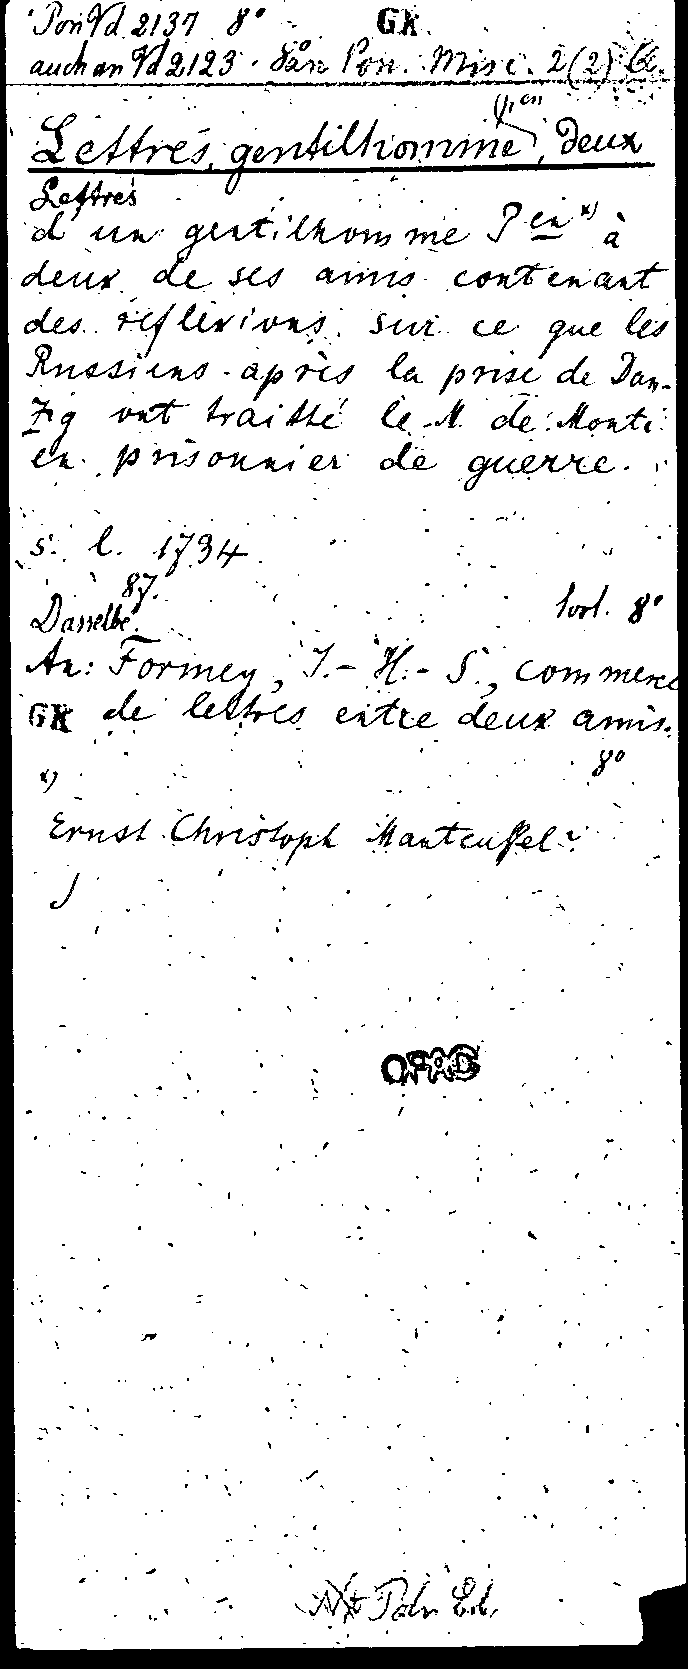 Pon Vd 2137 8° GK
auch an Vd 2123. Pon. Misc. 2(2)
Lettres, gentilhomme, deux
Lettres
d'un gentilhomme P en x) à
deux de ses amis contenant
des réflexions sur ce que les
Russiens après la prise de Dan-
zig ont traitté le M. de Monti
en prisonnier de guerre.
s. l. 1734
87.
vorl. 8°
Dasselbe.
An: Formey, J.-H.-S., commerce
GK de lettres entre deux amis.
8°
x)
Ernst Christoph Manteuffel
OPAC